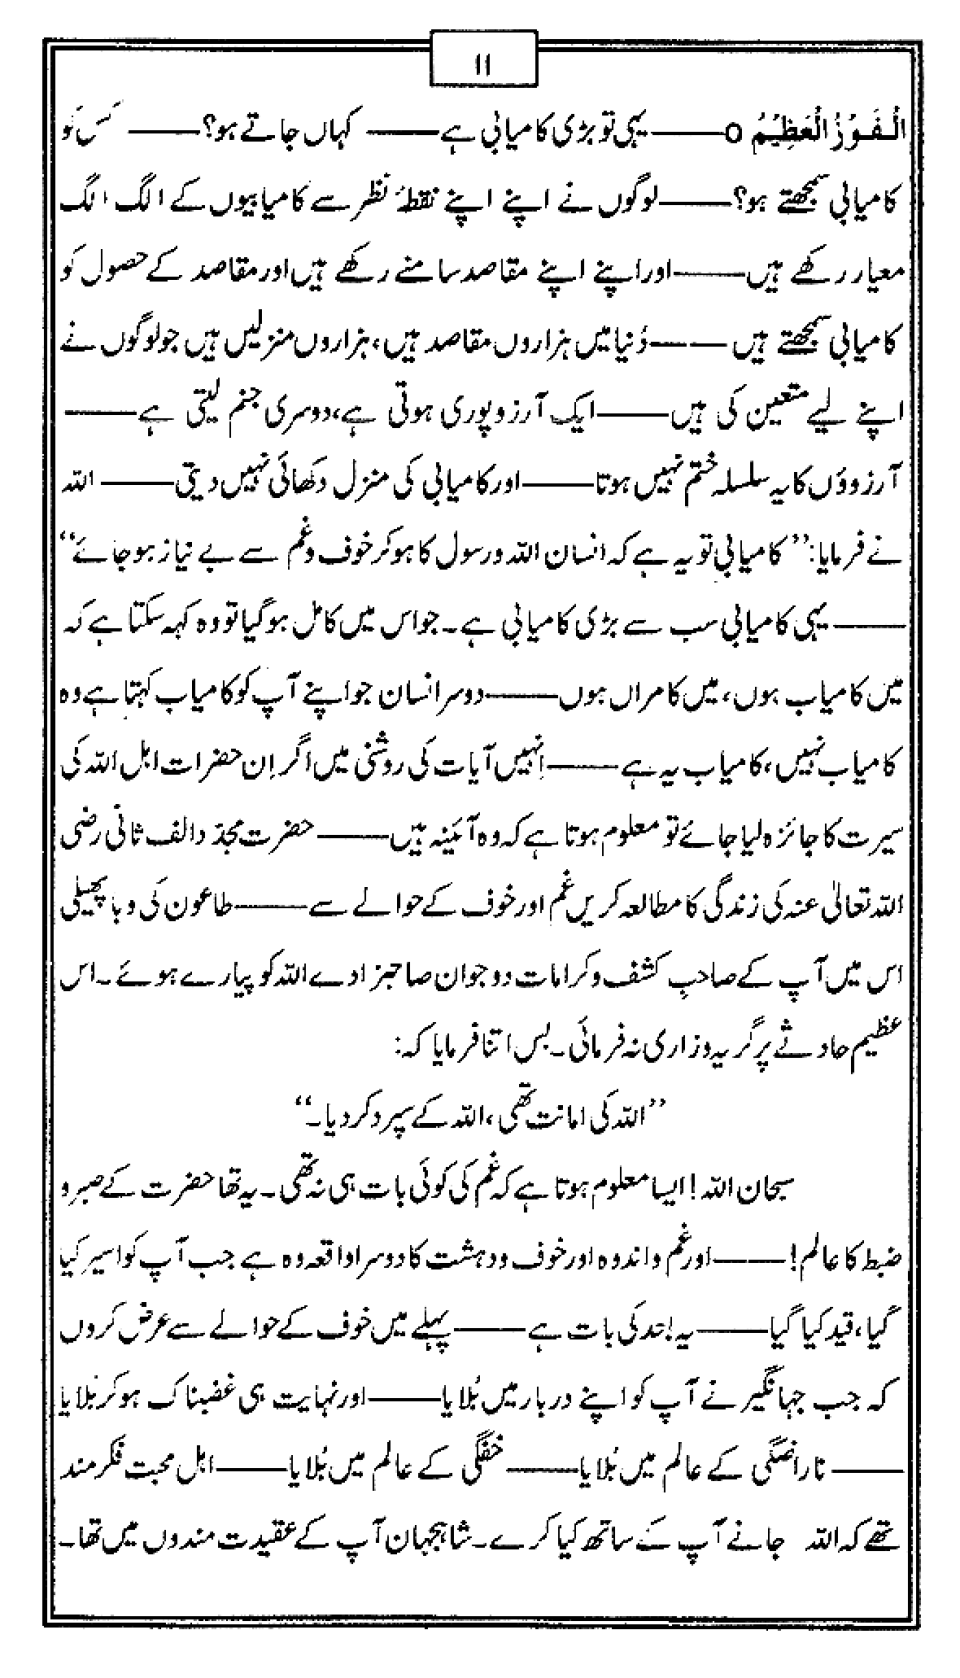 ۱۱
الْفَوْزُ الْعَظِيْمُ ○ ——— یہی تو بڑی کامیابی ہے ——— کہاں جاتے ہو؟ ——— کس کو
کامیابی سمجھتے ہو؟ ——— لوگوں نے اپنے اپنے نقطۂ نظر سے کامیابیوں کے الگ الگ
معیار رکھے ہیں ——— اور اپنے اپنے مقاصد سامنے رکھے ہیں اور مقاصد کے حصول کو
کامیابی سمجھتے ہیں ——— دُنیا میں ہزاروں مقاصد ہیں، ہزاروں منزلیں ہیں جو لوگوں نے
اپنے لیے متعین کی ہیں ——— ایک آرزو پوری ہوتی ہے، دوسری جنم لیتی ہے ———
آرزوؤں کا یہ سلسلہ ختم نہیں ہوتا ——— اور کامیابی کی منزل دکھائی نہیں دیتی ——— اللہ
نے فرمایا: ”کامیابی تو یہ ہے کہ انسان اللہ ورسول کا ہو کر خوف وغم سے بے نیاز ہو جائے“
——— یہی کامیابی سب سے بڑی کامیابی ہے۔ جو اس میں کامل ہو گیا تو وہ کہہ سکتا ہے کہ
میں کامیاب ہوں، میں کامراں ہوں ——— دوسرا انسان جو اپنے آپ کو کامیاب کہتا ہے وہ
کامیاب نہیں، کامیاب یہ ہے ——— اِنہیں آیات کی روشنی میں اگر اِن حضرات اہل اللہ کی
سیرت کا جائزہ لیا جائے تو معلوم ہوتا ہے کہ وہ آئینہ ہیں ——— حضرت مجدد الف ثانی رضی
اللہ تعالیٰ عنہ کی زندگی کا مطالعہ کریں غم اور خوف کے حوالے سے ——— طاعون کی وبا پھیلی
اس میں آپ کے صاحبِ کشف وکرامات دو جوان صاحبزادے اللہ کو پیارے ہوئے۔ اس
عظیم حادثے پر گریہ وزاری نہ فرمائی۔ بس اتنا فرمایا کہ:
”اللہ کی امانت تھی، اللہ کے سپرد کر دیا۔“
سبحان اللہ! ایسا معلوم ہوتا ہے کہ غم کی کوئی بات ہی نہ تھی۔ یہ تھا حضرت کے صبر و
ضبط کا عالم! ——— اور غم واندوہ اور خوف ودہشت کا دوسرا واقعہ وہ ہے جب آپ کو اسیر کیا
گیا، قید کیا گیا ——— یہ بعد کی بات ہے ——— پہلے میں خوف کے حوالے سے عرض کروں
کہ جب جہانگیر نے آپ کو اپنے دربار میں بُلایا ——— اور نہایت ہی غضبناک ہو کر بُلایا
——— ناراضگی کے عالم میں بُلایا ——— خفگی کے عالم میں بُلایا ——— اہل محبت فکر مند
تھے کہ اللہ جانے آپ کے ساتھ کیا کرے۔ شاہجہان آپ کے عقیدت مندوں میں تھا۔